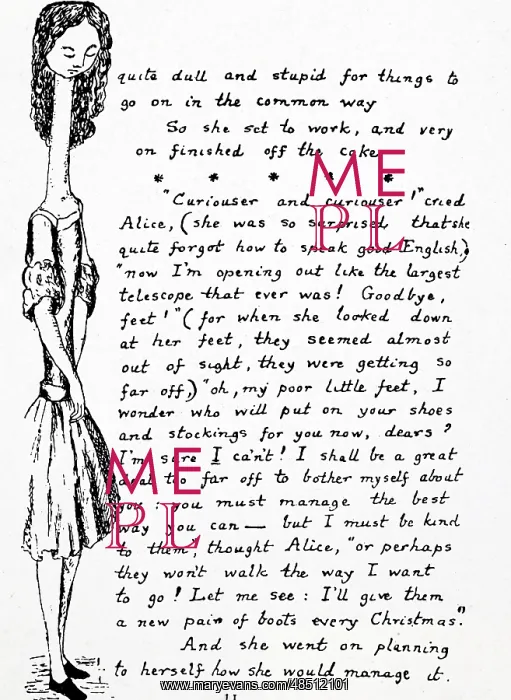 quite dull and stupid for things to
go on in the common way
So she set to work, and very
on finished off the cake
* * * * *
"Curiouser and curiouser!" cried
Alice, (she was so surprised, that she
quite forgot how to speak good English,)
"now I'm opening out like the largest
telescope that ever was! Goodbye,
feet!" (for when she looked down
at her feet, they seemed almost
out of sight, they were getting so
far off,) "oh, my poor little feet, I
wonder who will put on your shoes
and stockings for you now, dears?
I'm sure I can't! I shall be a great
deal too far off to bother myself about
you: you must manage the best
way you can — but I must be kind
to them, thought Alice, "or perhaps
they won't walk the way I want
to go! Let me see: I'll give them
a new pair of boots every Christmas."
And she went on planning
to herself how she would manage it.
11
ME
PL
ME
PL
www.maryevans.com/48512101